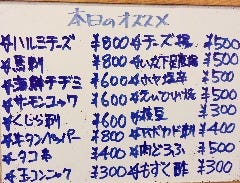 本日のオススメ
☆ハルミチーズ ¥800
☆馬刺 ¥800
☆海鮮チヂミ ¥600
☆サーモンユッケ ¥600
☆くじら刺 ¥600
☆牛タンペッパー ¥800
☆タコ糸 ¥400
☆玉コンニャク ¥300
☆チーズ揚 ¥500
¥500
☆ホヤ塩辛 ¥500
¥500
☆枝豆 ¥300
刺 ¥400
☆肉どうふ ¥500
☆もずく酢 ¥300